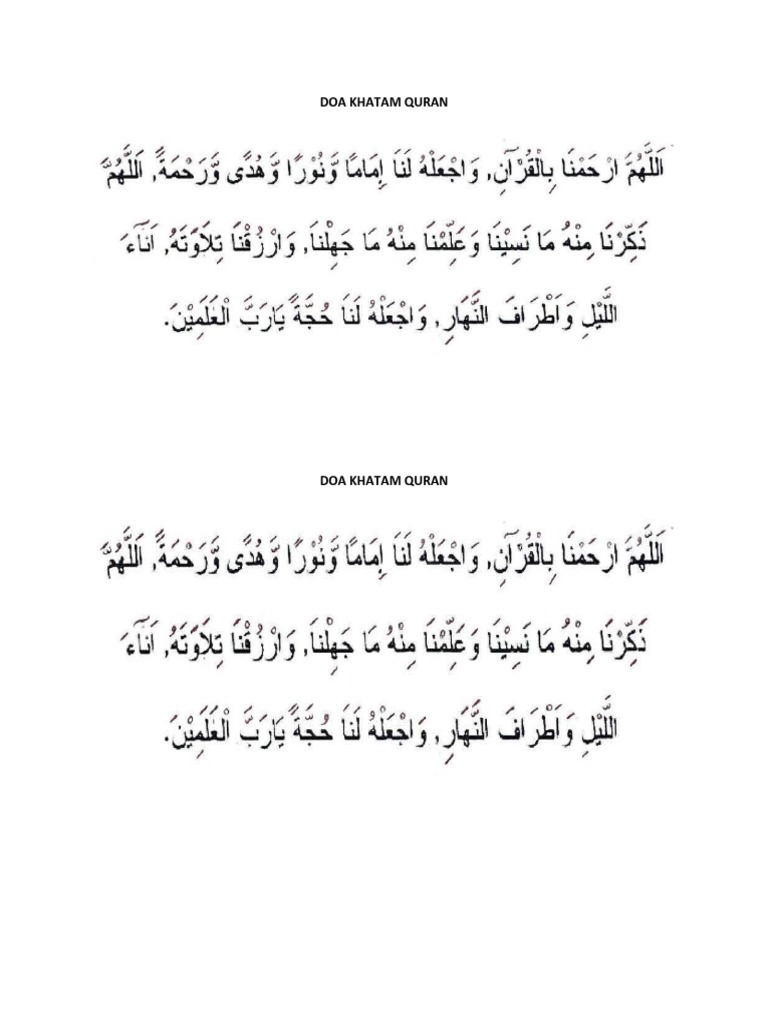 DOA KHATAM QURAN
اَللَّهُمَّ ارْحَمْنَا بِالْقُرْآنِ, وَاجْعَلْهُ لَنَا إِمَامًا وَّنُوْرًا وَّهُدًى وَّرَحْمَةً, اَللَّهُمَّ
ذَكِّرْنَا مِنْهُ مَا نَسِيْنَا وَعَلِّمْنَا مِنْهُ مَا جَهِلْنَا, وَارْزُقْنَا تِلَاوَتَهُ, اَنَآءَ
اللَّيْلِ وَاَطْرَافَ النَّهَارِ, وَاجْعَلْهُ لَنَا حُجَّةً يَارَبَّ الْعٰلَمِيْنَ.
DOA KHATAM QURAN
اَللَّهُمَّ ارْحَمْنَا بِالْقُرْآنِ, وَاجْعَلْهُ لَنَا إِمَامًا وَّنُوْرًا وَّهُدًى وَّرَحْمَةً, اَللَّهُمَّ
ذَكِّرْنَا مِنْهُ مَا نَسِيْنَا وَعَلِّمْنَا مِنْهُ مَا جَهِلْنَا, وَارْزُقْنَا تِلَاوَتَهُ, اَنَآءَ
اللَّيْلِ وَاَطْرَافَ النَّهَارِ, وَاجْعَلْهُ لَنَا حُجَّةً يَارَبَّ الْعٰلَمِيْنَ.